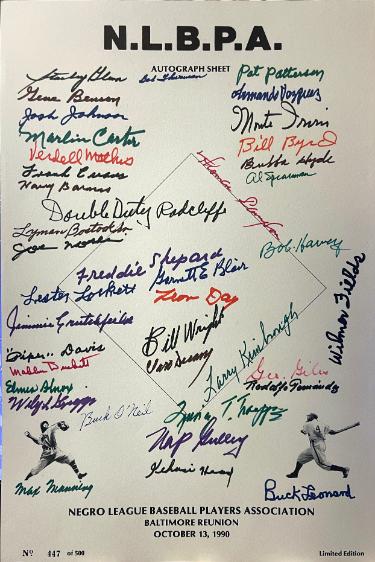 N.L.B.P.A.
AUTOGRAPH SHEET
Stanley Glenn
Bob Thurman
Pat Patterson
Gene Benson
Armando Vazquez
Josh Johnson
Monte Irvin
Marlin Carter
Bill Byrd
Verdell Mathis
Bubba Hyde
Frank Evans
Al Spearman
Harry Barnes
Double Duty Radcliffe
Lyman Bostock Sr
Bob Harvey
Freddie Shepard
Garnett E Blair
Lester Lockett
Leon Day
Wilmer Fields
Jimmie Crutchfield
Bill Wright
"Piper" Davis
Larry Kimbrough
Mahlon Duckett
Geo. Giles
Rodolfo Fernandez
Buck O'Neil
Nap Gulley
Max Manning
Buck Leonard
NEGRO LEAGUE BASEBALL PLAYERS ASSOCIATION
BALTIMORE REUNION
OCTOBER 13, 1990
Nº 447 of 500
Limited Edition